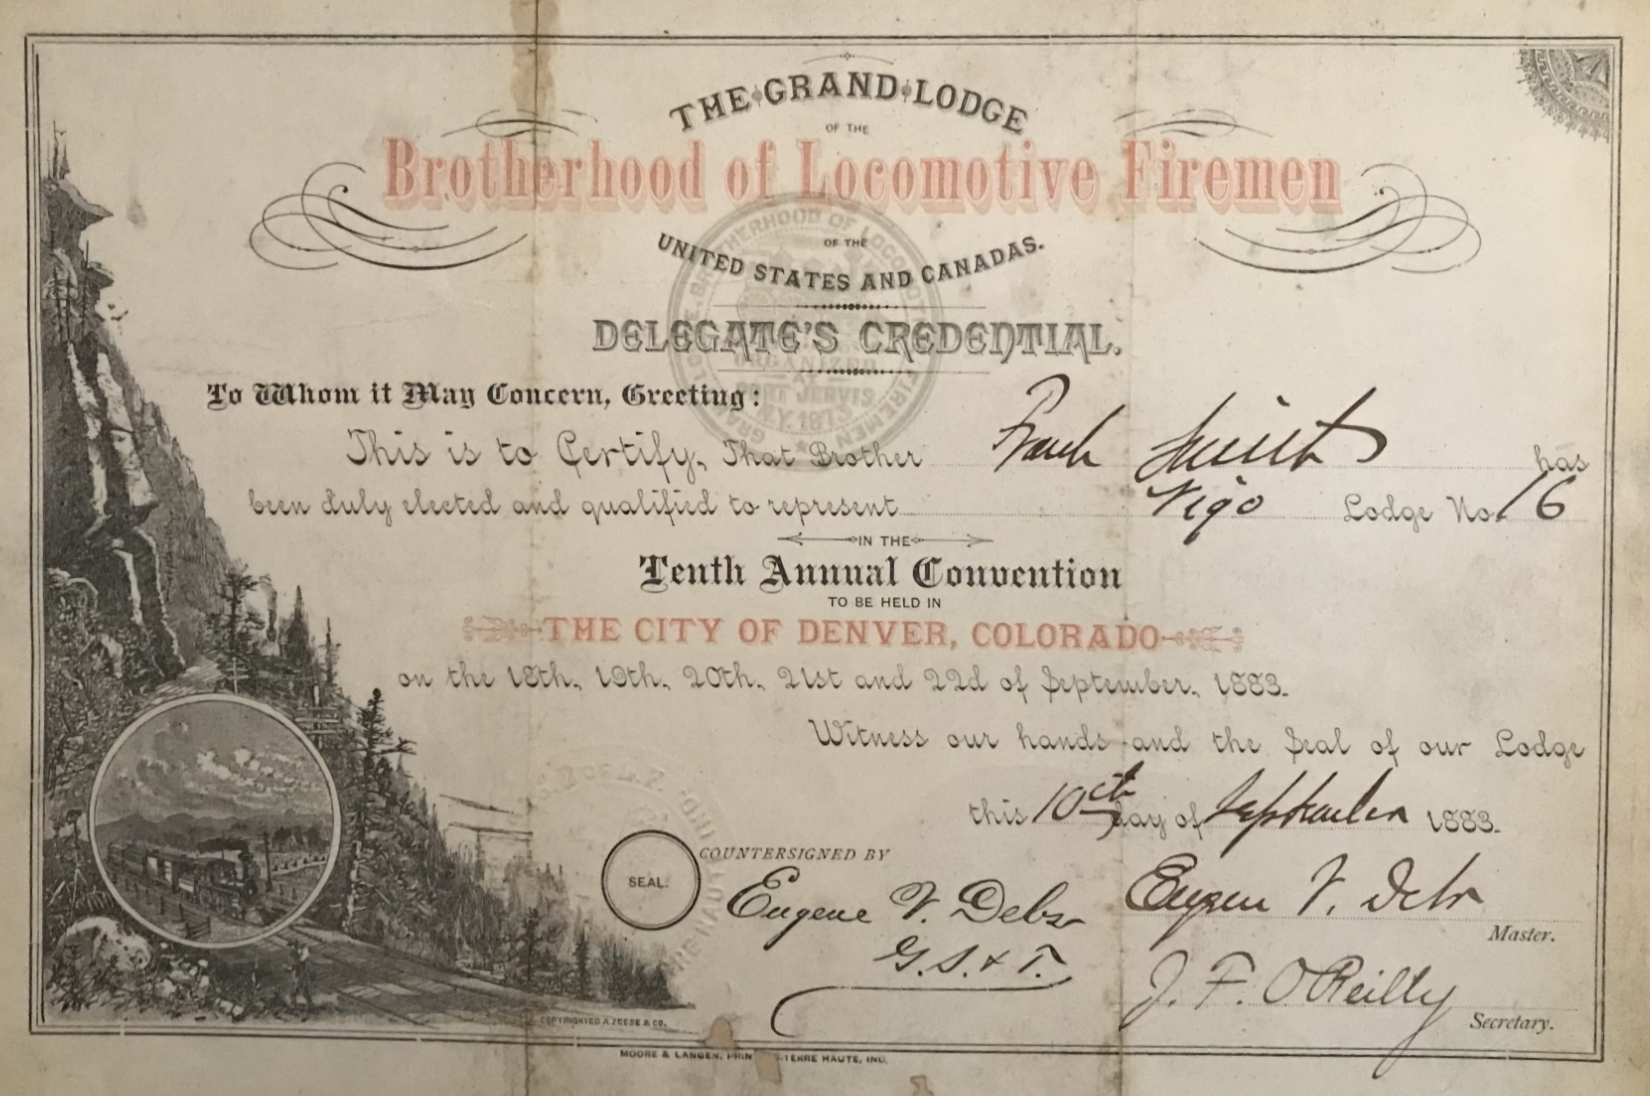 THE GRAND LODGE
OF THE
Brotherhood of Locomotive Firemen
OF THE
UNITED STATES AND CANADAS.
DELEGATE'S CREDENTIAL.
To Whom it May Concern, Greeting:
This is to Certify, That Brother Frank Smith has
been duly elected and qualified to represent Vigo Lodge No. 16
IN THE
Tenth Annual Convention
TO BE HELD IN
THE CITY OF DENVER, COLORADO
on the 18th, 19th, 20th, 21st and 22d of September, 1883.
Witness our hands and the Seal of our Lodge
this 10th day of September 1883.
SEAL.
COUNTERSIGNED BY
Eugene V. Debs
G. S. & T.
Eugene V. Debs
Master.
J. F. O'Reilly
Secretary.
COPYRIGHTED A. ZEESE & CO.
MOORE & LANGEN, PRIN TERRE HAUTE, IND.
GRAND LODGE BROTHERHOOD OF LOCOMOTIVE FIREMEN
ORGANIZED
PORT JERVIS
N.Y. 1873
B OF L. F.
TERRE HAUTE IND.